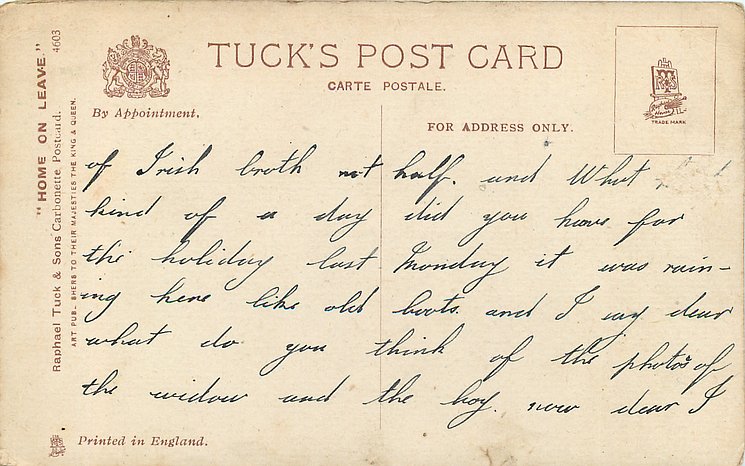 TUCK'S POST CARD
CARTE POSTALE.
By Appointment.
FOR ADDRESS ONLY.
TRADE MARK
"HOME ON LEAVE."
Raphael Tuck & Sons Carbonette Postcard. 4603
ART PUBLISHERS TO THEIR MAJESTIES THE KING & QUEEN.
of Irish broth not half. and What
kind of a day did you have for
the holiday last Monday it was rain-
ing here like old boots. and I say dear
what do you think of the photos of
the widow and the boy. now dear I
Printed in England.